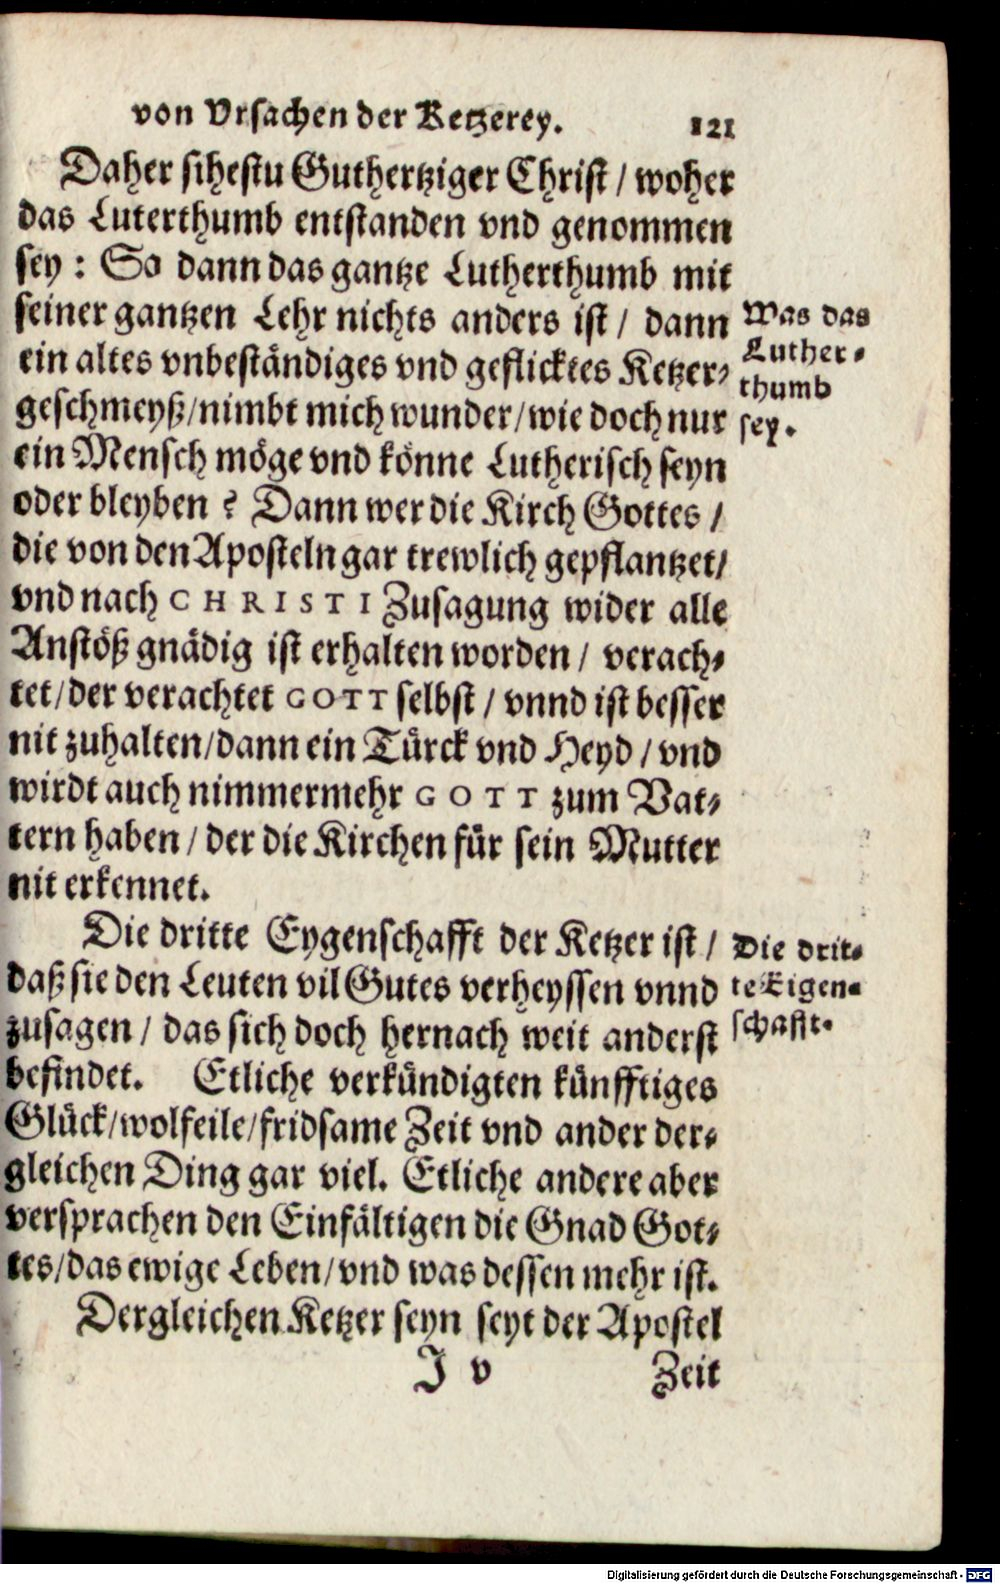 von Vrsachen der Ketzerey. 121
Daher sihestu Guthertziger Christ / woher
das Luterthumb entstanden vnd genommen
sey : So dann das gantze Lutherthumb mit
seiner gantzen Lehr nichts anders ist / dann
ein altes vnbeständiges vnd geflicktes Ketzer-
geschmeyß/nimbt mich wunder/wie doch nur
ein Mensch möge vnd könne Lutherisch seyn
oder bleyben ? Dann wer die Kirch Gottes /
die von den Aposteln gar trewlich gepflantzet/
vnd nach CHRISTI Zusagung wider alle
Anstöß gnädig ist erhalten worden / verach-
tet/der verachtet GOTT selbst / vnnd ist besser
nit zuhalten/dann ein Türck vnd Heyd / vnd
wirdt auch nimmermehr GOTT zum Vat-
tern haben / der die Kirchen für sein Mutter
nit erkennet.
Was das
Luther-
thumb
sey.
Die dritte Eygenschafft der Ketzer ist /
daß sie den Leuten vil Gutes verheyssen vnnd
zusagen / das sich doch hernach weit anderst
befindet. Etliche verkündigten künfftiges
Glück/wolfeile/fridsame Zeit vnd ander der-
gleichen Ding gar viel. Etliche andere aber
versprachen den Einfältigen die Gnad Got-
tes/das ewige Leben/vnd was dessen mehr ist.
Die drit-
te Eigen-
schafft.
Dergleichen Ketzer seyn seyt der Apostel
J v Zeit
Digitalisierung gefördert durch die Deutsche Forschungsgemeinschaft - DFG